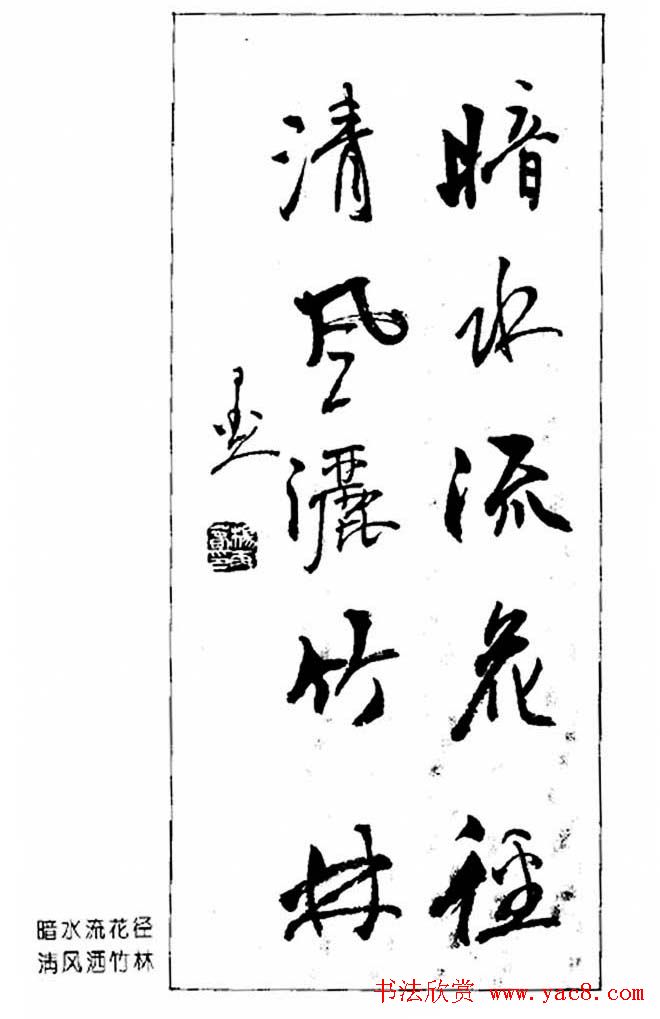 暗水流花徑
清風灑竹林
暗水流花径
清风洒竹林
书法欣赏 www.yac8.com